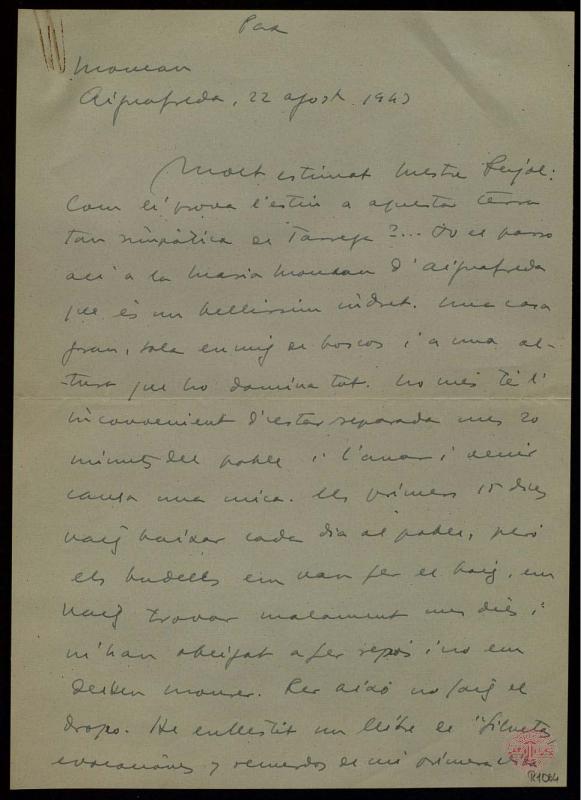 Pax
Moncau
Aiguafreda, 22 agost 1943
Molt estimat mestre Pujol:
Com li prova l'estiu a aquestas terra
tan simpàtica de Tarrega?... Jo el passo
ací a la masia Moncau d'Aiguafreda
que és un bellissim indret. Una casa
gran, sola enmig de boscos i a una al-
tura que ho domina tot. No més té l'
inconvenient d'estar separada uns 20
minuts del poble i l'anar i venir
cansa una mica. Els primers 15 dies
vaig baixar cada dia al poble, però
els budells em van fer el baig, em
vaig trovar malament uns dies i
m'han obligat a fer repós i no em
deixen moure. Per aixó no faig el
dropo. He enllestit un llibre de "Siluetas,
evocaciones y recuerdos de mi primera
R1064